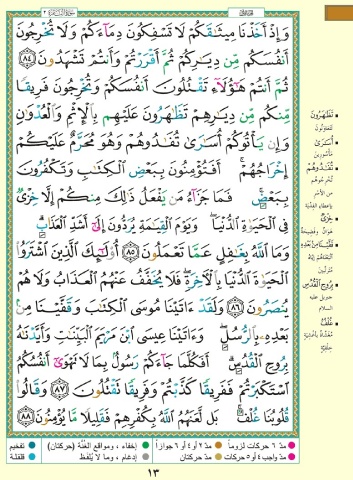 وَإِذْ أَخَذْنَا مِيثَٰقَكُمْ لَا تَسْفِكُونَ دِمَآءَكُمْ وَلَا تُخْرِجُونَ
أَنفُسَكُم مِّن دِيَٰرِكُمْ ثُمَّ أَقْرَرْتُمْ وَأَنتُمْ تَشْهَدُونَ ٨٤
ثُمَّ أَنتُمْ هَٰٓؤُلَآءِ تَقْتُلُونَ أَنفُسَكُمْ وَتُخْرِجُونَ فَرِيقًا
مِّنكُم مِّن دِيَٰرِهِمْ تَظَٰهَرُونَ عَلَيْهِم بِٱلْإِثْمِ وَٱلْعُدْوَٰنِ
وَإِن يَأْتُوكُمْ أُسَٰرَىٰ تُفَٰدُوهُمْ وَهُوَ مُحَرَّمٌ عَلَيْكُمْ
إِخْرَاجُهُمْ ۚ أَفَتُؤْمِنُونَ بِبَعْضِ ٱلْكِتَٰبِ وَتَكْفُرُونَ
بِبَعْضٍ ۚ فَمَا جَزَآءُ مَن يَفْعَلُ ذَٰلِكَ مِنكُمْ إِلَّا خِزْىٌ
فِى ٱلْحَيَوٰةِ ٱلدُّنْيَا ۖ وَيَوْمَ ٱلْقِيَٰمَةِ يُرَدُّونَ إِلَىٰٓ أَشَدِّ ٱلْعَذَابِ ۗ
وَمَا ٱللَّهُ بِغَٰفِلٍ عَمَّا تَعْمَلُونَ ٨٥ أُو۟لَٰٓئِكَ ٱلَّذِينَ ٱشْتَرَوُا۟
ٱلْحَيَوٰةَ ٱلدُّنْيَا بِٱلْءَاخِرَةِ ۖ فَلَا يُخَفَّفُ عَنْهُمُ ٱلْعَذَابُ وَلَا هُمْ
يُنصَرُونَ ٨٦ وَلَقَدْ ءَاتَيْنَا مُوسَى ٱلْكِتَٰبَ وَقَفَّيْنَا مِنۢ
بَعْدِهِۦ بِٱلرُّسُلِ ۖ وَءَاتَيْنَا عِيسَى ٱبْنَ مَرْيَمَ ٱلْبَيِّنَٰتِ وَأَيَّدْنَٰهُ
بِرُوحِ ٱلْقُدُسِ ۗ أَفَكُلَّمَا جَآءَكُمْ رَسُولٌۢ بِمَا لَا تَهْوَىٰٓ أَنفُسُكُمُ
ٱسْتَكْبَرْتُمْ فَفَرِيقًا كَذَّبْتُمْ وَفَرِيقًا تَقْتُلُونَ ٨٧ وَقَالُوا۟
قُلُوبُنَا غُلْفٌۢ ۚ بَل لَّعَنَهُمُ ٱللَّهُ بِكُفْرِهِمْ فَقَلِيلًا مَّا يُؤْمِنُونَ ٨٨
تَظَٰهَرُونَ
أُسَٰرَىٰ
تُفَٰدُوهُمْ
خِزْىٌ
بِرُوحِ ٱلْقُدُسِ
جبريل عليه
السلام
غُلْفٌ
مدّ ٦ حركات لزوماً
مدّ ٢ أو ٤ أو ٦ جوازاً
إخفاء، ومواقع الغنّة (حركتان)
تفخيم
مدّ واجب ٤ أو ٥ حركات
مدّ حركتان
إدغام، وما لا يُلفظ
قلقلة
١٣